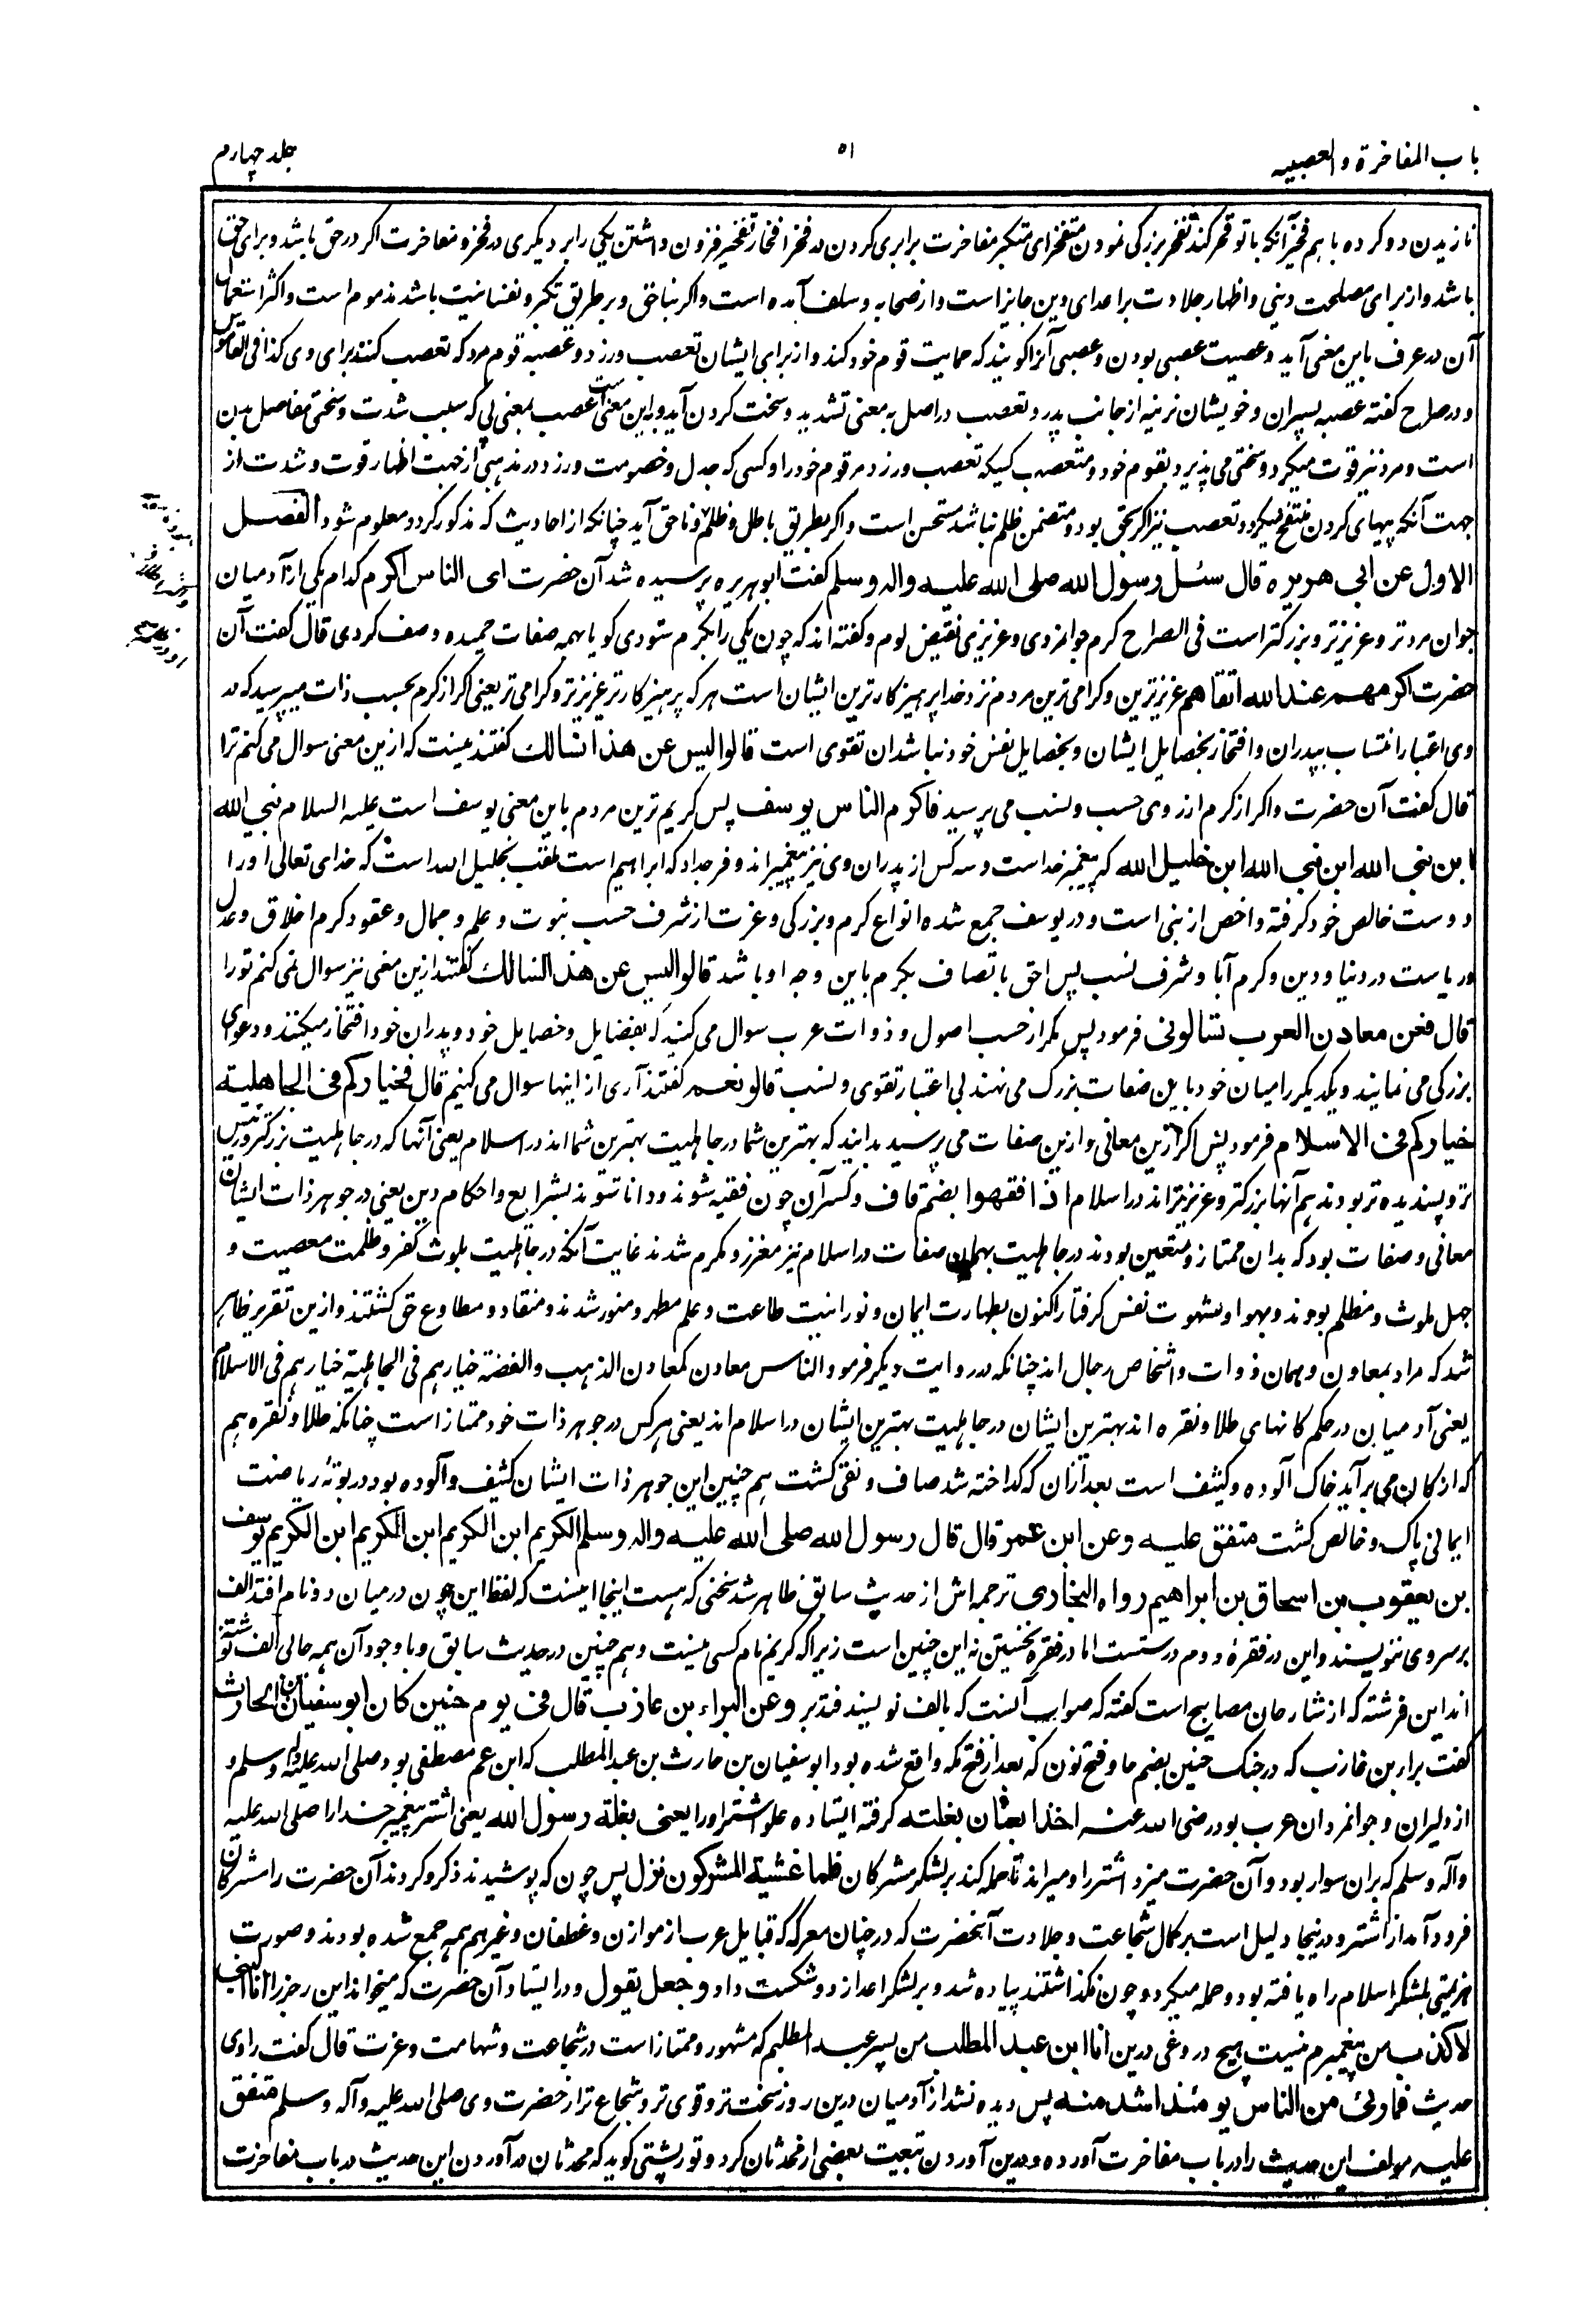 باب المفاخرة والعصبیه
۵۱
جلد چهارم
نازیدن دو کرده با هم فخیر آنکه با تو فخر کند تفخر بزرکی نمودن متفخر ای متکبر مفاخرت برابری کردن در فخر افتخار تفخیر فزون داشتن یکی را بر دیکری در فخر و مفاخرت اکر در حق باشد و برای حق
باشد و از برای مصلحت دینی و اظهار جلادت بر اعدای دین جایز است و از صحابه و سلف آمده است و اکر بناحق و بر طریق تکبر و نفسانیت باشد مذموم است و اکثر استعمال
آن در عرف باین معنی آید و عصبیت عصبی بودن و عصبی آنرا کویند که حمایت قوم خود کند و از برای ایشان تعصب ورزد و عصبه قوم مرد که تعصب کنند برای وی کذا فی القاموس
و در صراح کفته عصبه پسران و خویشان نرینه از جانب پدر و تعصب در اصل به معنی تشدید و سخت کردن آید و باین معنی است عصب بمعنی پی که سبب شدت و سختی مفاصل بدن
است و مرد نیز قوت میکیرد و سختی می پذیرد بقوم خود و متعصب کسیکه تعصب ورزد مر قوم خود را و کسی که جدل و خصومت ورزد در مذهبی از جهت اظهار قوت و شدت از
جهت آنکه پیهای کردن منتفخ میکردد و تعصب نیز اکر بحق بود و متضمن ظلم نباشد مستحسن است و اکر بطریق باطل و ظلم و ناحق آید چنانکه از احادیث که مذکور کردد معلوم شود الفصل
الاول عن ابی هریره قال سئل رسول الله صلی الله علیه واله وسلم کفت ابو هریره پرسیده شد آن حضرت ای الناس اکرم کدام یکی از آدمیان
جوان مرد تر و عزیز تر و بزرکتر است فی الصراح کرم جوانمردی و عزیزی نقیض لوم و کفته اند که چون یکی را بکرم ستودی کویا بهمه صفات حمیده وصف کردی قال کفت آن
حضرت اکرمهم عند الله اتقاهم عزیزترین و کرامی ترین مردم نزد خدا پرهیز کارترین ایشان است هر که پرهیز کارتر عزیزتر و کرامی تر یعنی اکر از کرم بحسب ذات میپرسید که در
وی اعتبار انتساب بپدران و افتخار بخصایل ایشان و بخصایل نفس خود نباشد ان تقوی است قالوا لیس عن هذا نسالک کفتند نیست که ازین معنی سوال می کنم ترا
قال کفت آن حضرت واکر از کرم از روی حسب و نسب می پرسید فاکرم الناس یوسف پس کریم ترین مردم باین معنی یوسف است علیه السلام نبی الله
ابن نبی الله ابن نبی الله ابن خلیل الله که پیغمبر خداست و سه کس از پدران وی نیز پیغمبراند و فرجد او که ابراهیم است ملقب بخلیل الله است که خدای تعالی اورا
دوست خالص خود کرفته و اخص از نبی است و در یوسف جمع شده انواع کرم و بزرکی و عزت از شرف حسب نبوت و علم و جمال و عقود کرم اخلاق و عدل
و ریاست در دنیا و دین و کرم آبا و شرف نسب پس احق باتصاف بکرم باین وجه او باشد قالوا لیس عن هذا نسالک کفتند ازین معنی نیز سوال نمی کنم تو را
قال فعن معادن العرب تسالونی فرمود پس مکر از حسب اصول و ذوات عرب سوال می کنید که بفضایل و خصایل خود و پدران خود افتخار میکنند و دعوای
بزرکی می نمایند و یکدیکر را میان خود باین صفات بزرک می نهند بی اعتبار تقوی و نسب قالو نعم کفتند آری از اینها سوال می کنیم قال فخیارکم فی الجاهلیة
خیارکم فی الاسلام فرمود پس اکر ازین معانی و ازین صفات می پرسید بدانید که بهترین شما در جاهلیت بهترین شما اند در اسلام یعنی آنها که در جاهلیت بزرکتر و رئیس
تر و پسندیده تر بودند هم آنها بزرکتر و عزیزتراند در اسلام اذا فقهوا بضم قاف و کسر آن چون فقیه شوند و دانا شوند بشرایع و احکام دین یعنی در جوهر ذات ایشان
معانی و صفات بود که بدان ممتاز و متعین بودند در جاهلیت بهمان صفات در اسلام نیز معزز و مکرم شدند غایت آنکه در جاهلیت بلوث کفر و ظلمت معصیت و
جهل ملوث و مظلم بودند و بهوا و بشهوت نفس کرفتار اکنون بطهارت ایمان و نورانیت طاعت و علم مطهر و منور شدند و منقاد و مطاوع حق کشتند و ازین تقریر ظاهر
شد که مراد بمعادن همان ذوات و اشخاص رجال اند چنانکه در روایت دیکر فرمود الناس معادن کمعادن الذهب والفضة خیارهم فی الجاهلیة خیارهم فی الاسلام
یعنی آدمیان در حکم کانهای طلا و نقره اند بهترین ایشان در جاهلیت بهترین ایشان در اسلام اند یعنی هر کس در جوهر ذات خود ممتاز است چنانکه طلا و نقره هم
که از کان می برآید خاک آلوده و کثیف است بعد ازان که کداخته شد صاف و نقی کشت هم چنین این جوهر ذات ایشان کثیف و آلوده بود در بوتهٔ ریاضت
ایمانی پاک و خالص کشت متفق علیه وعن ابن عمر قال قال رسول الله صلی الله علیه واله وسلم الکریم ابن الکریم ابن الکریم ابن الکریم یوسف
بن یعقوب بن اسحاق بن ابراهیم رواه البخاری ترجمه اش از حدیث سابق ظاهر شد سخنی که هست اینجا اینست که لفظ ابن چون در میان دو نام افتد الف
بر سر وی ننویسند و این در فقرهٔ دوم درستست اما در فقره نخستین نه این چنین است زیرا که کریم نام کسی نیست و هم چنین در حدیث سابق و با وجود آن همه حالی الف نوشته
اند ابن فرشته که از شارحان مصابیح است کفته که صواب آنست که بالف نویسند فتدبر وعن البراء بن عازب قال فی یوم حنین کان ابو سفیان بن الحارث
کفت براء بن عازب که در جنک حنین بضم حا و فتح نون که بعد از فتح مکه واقع شده بود ابو سفیان بن حارث بن عبدالمطلب که ابن عم مصطفی بود صلی الله علیه وآله وسلم و
از دلیران و جوانمردان عرب بود رضی الله عنه اخذا بعنان بغلته کرفته ایستاده جلو اشتر اورا یعنی بغلة رسول الله یعنی اشتر پیغمبر خدا را صلی الله علیه
وآله وسلم که بران سوار بود و آن حضرت میزد اشتر را و میراند تا حمله کند بر لشکر مشرکان فلما غشیه المشرکون نزل پس چون که پوشیدند ذکر و کردند آن حضرت را مشرکان
فرود آمد از اشتر و درینجا دلیل است بر کمال شجاعت و جلادت آنحضرت که در چنان معرکه که قبایل عرب از هوازن و غطفان و غیر هم همه جمع شده بودند و صورت
هزیمتی بلشکر اسلام راه یافته بود و حمله میکرد و چون نکذاشتند پیاده شد و بر لشکر اعدا زد و شکست داد وجعل یقول و درایستاد آن حضرت که میخواند این رجز را انا النبی
لا کذب من پیغمبرم نیست هیچ دروغی درین انا ابن عبد المطلب من پسر عبد المطلبم که مشهور و ممتاز است در شجاعت و شهامت و عزت قال کفت راوی
حدیث فما رئی من الناس یومئذ اشد منه پس دیده نشد از آدمیان درین روز سخت تر و قوی تر و شجاع تر از حضرت وی صلی الله علیه وآله وسلم متفق
علیه مولف این حدیث را در باب مفاخرت آورده و درین آوردن تبعیت بعضی از محدثان کرد و تورپشتی کوید که محدثان در آوردن این حدیث در باب مفاخرت